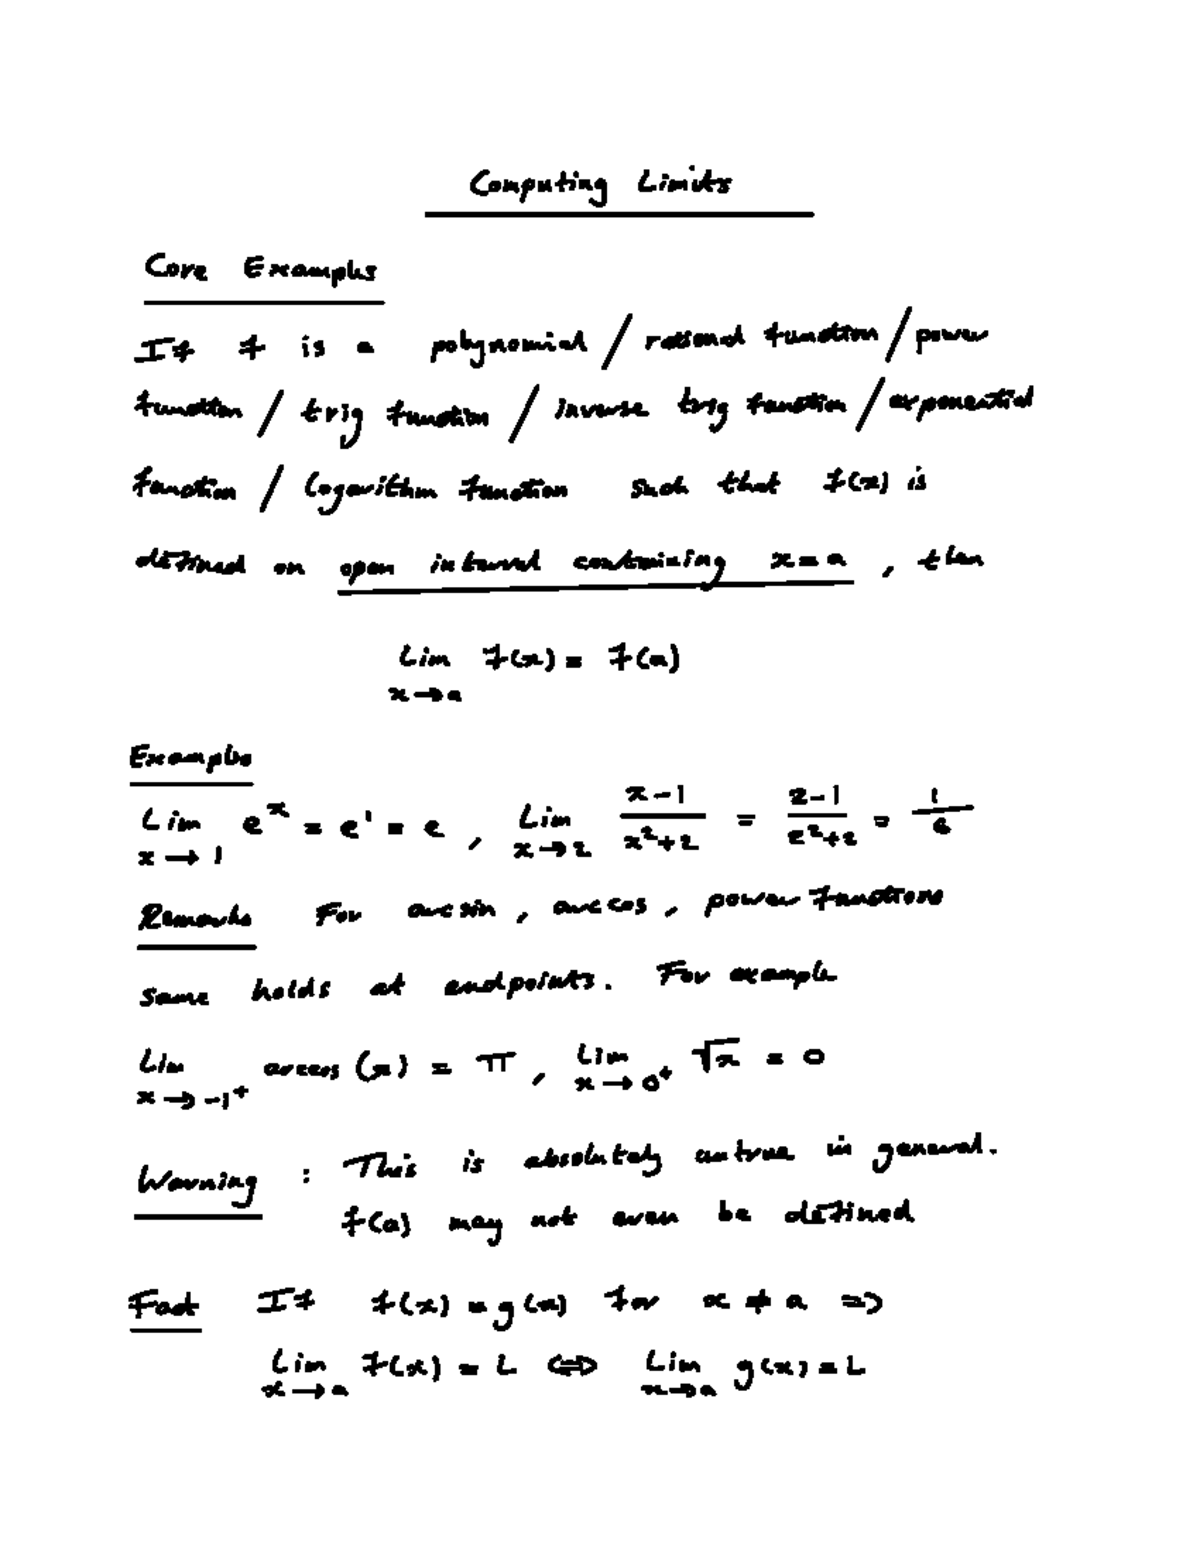 Computing Limits
Core Examples
If f is a polynomial / rational function / power
function / trig function / inverse trig function / exponential
function / logarithm function such that f(x) is
defined on open interval containing x = a , then
Lim f(x) = f(a)
x → a
Examples
Lim e^x = e^1 = e , Lim (x-1)/(x^2+2) = (2-1)/(2^2+2) = 1/6
x → 1 x → 2
Remarks For arcsin , arccos , power functions
same holds at endpoints. For example
Lim arccos (x) = π , Lim √x = 0
x → -1^+ x → 0^+
Warning : This is absolutely untrue in general.
f(a) may not even be defined
Fact If f(x) = g(x) for x ≠ a =>
Lim f(x) = L <=> Lim g(x) = L
x → a x → a